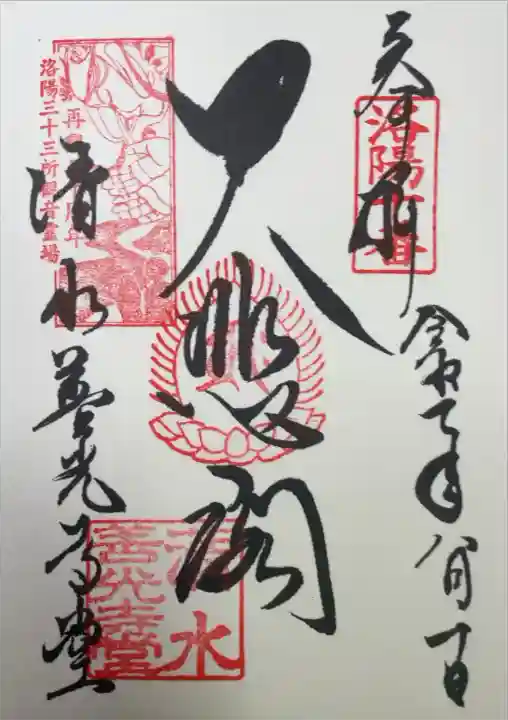 奉拝
令和元年八月十一日
大悲閣
清水善光寺堂
洛陽十番
洛陽三十三所観音霊場
再興
周年
清水
善光寺堂